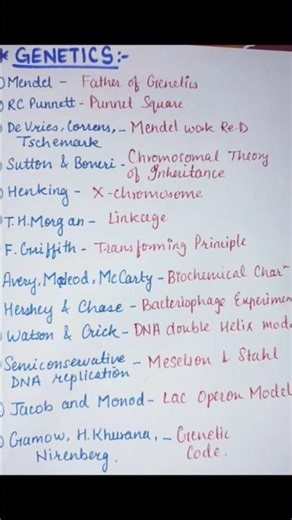 * GENETICS:-
Mendel - Father of Genetics
RC Punnett - Punnet Square
De Vries, Correns, - Mendel work Re-D
Tschemark
Sutton & Boveri - Chromosomal Theory
of Inheritance
Henking - X-chromosome
T.H.Morgan - Linkage
F. Griffith - Transforming Principle
Avery, Macleod, McCarty - Biochemical Char
Hershey & Chase - Bacteriophage Experimen
Watson & Crick - DNA double Helix mod
Semiconservative - Meselson & Stahl
DNA replication
Jacob and Monod - Lac Operon Model
Gamow, H. Khurana, - Genetic
Nirenberg. Code.